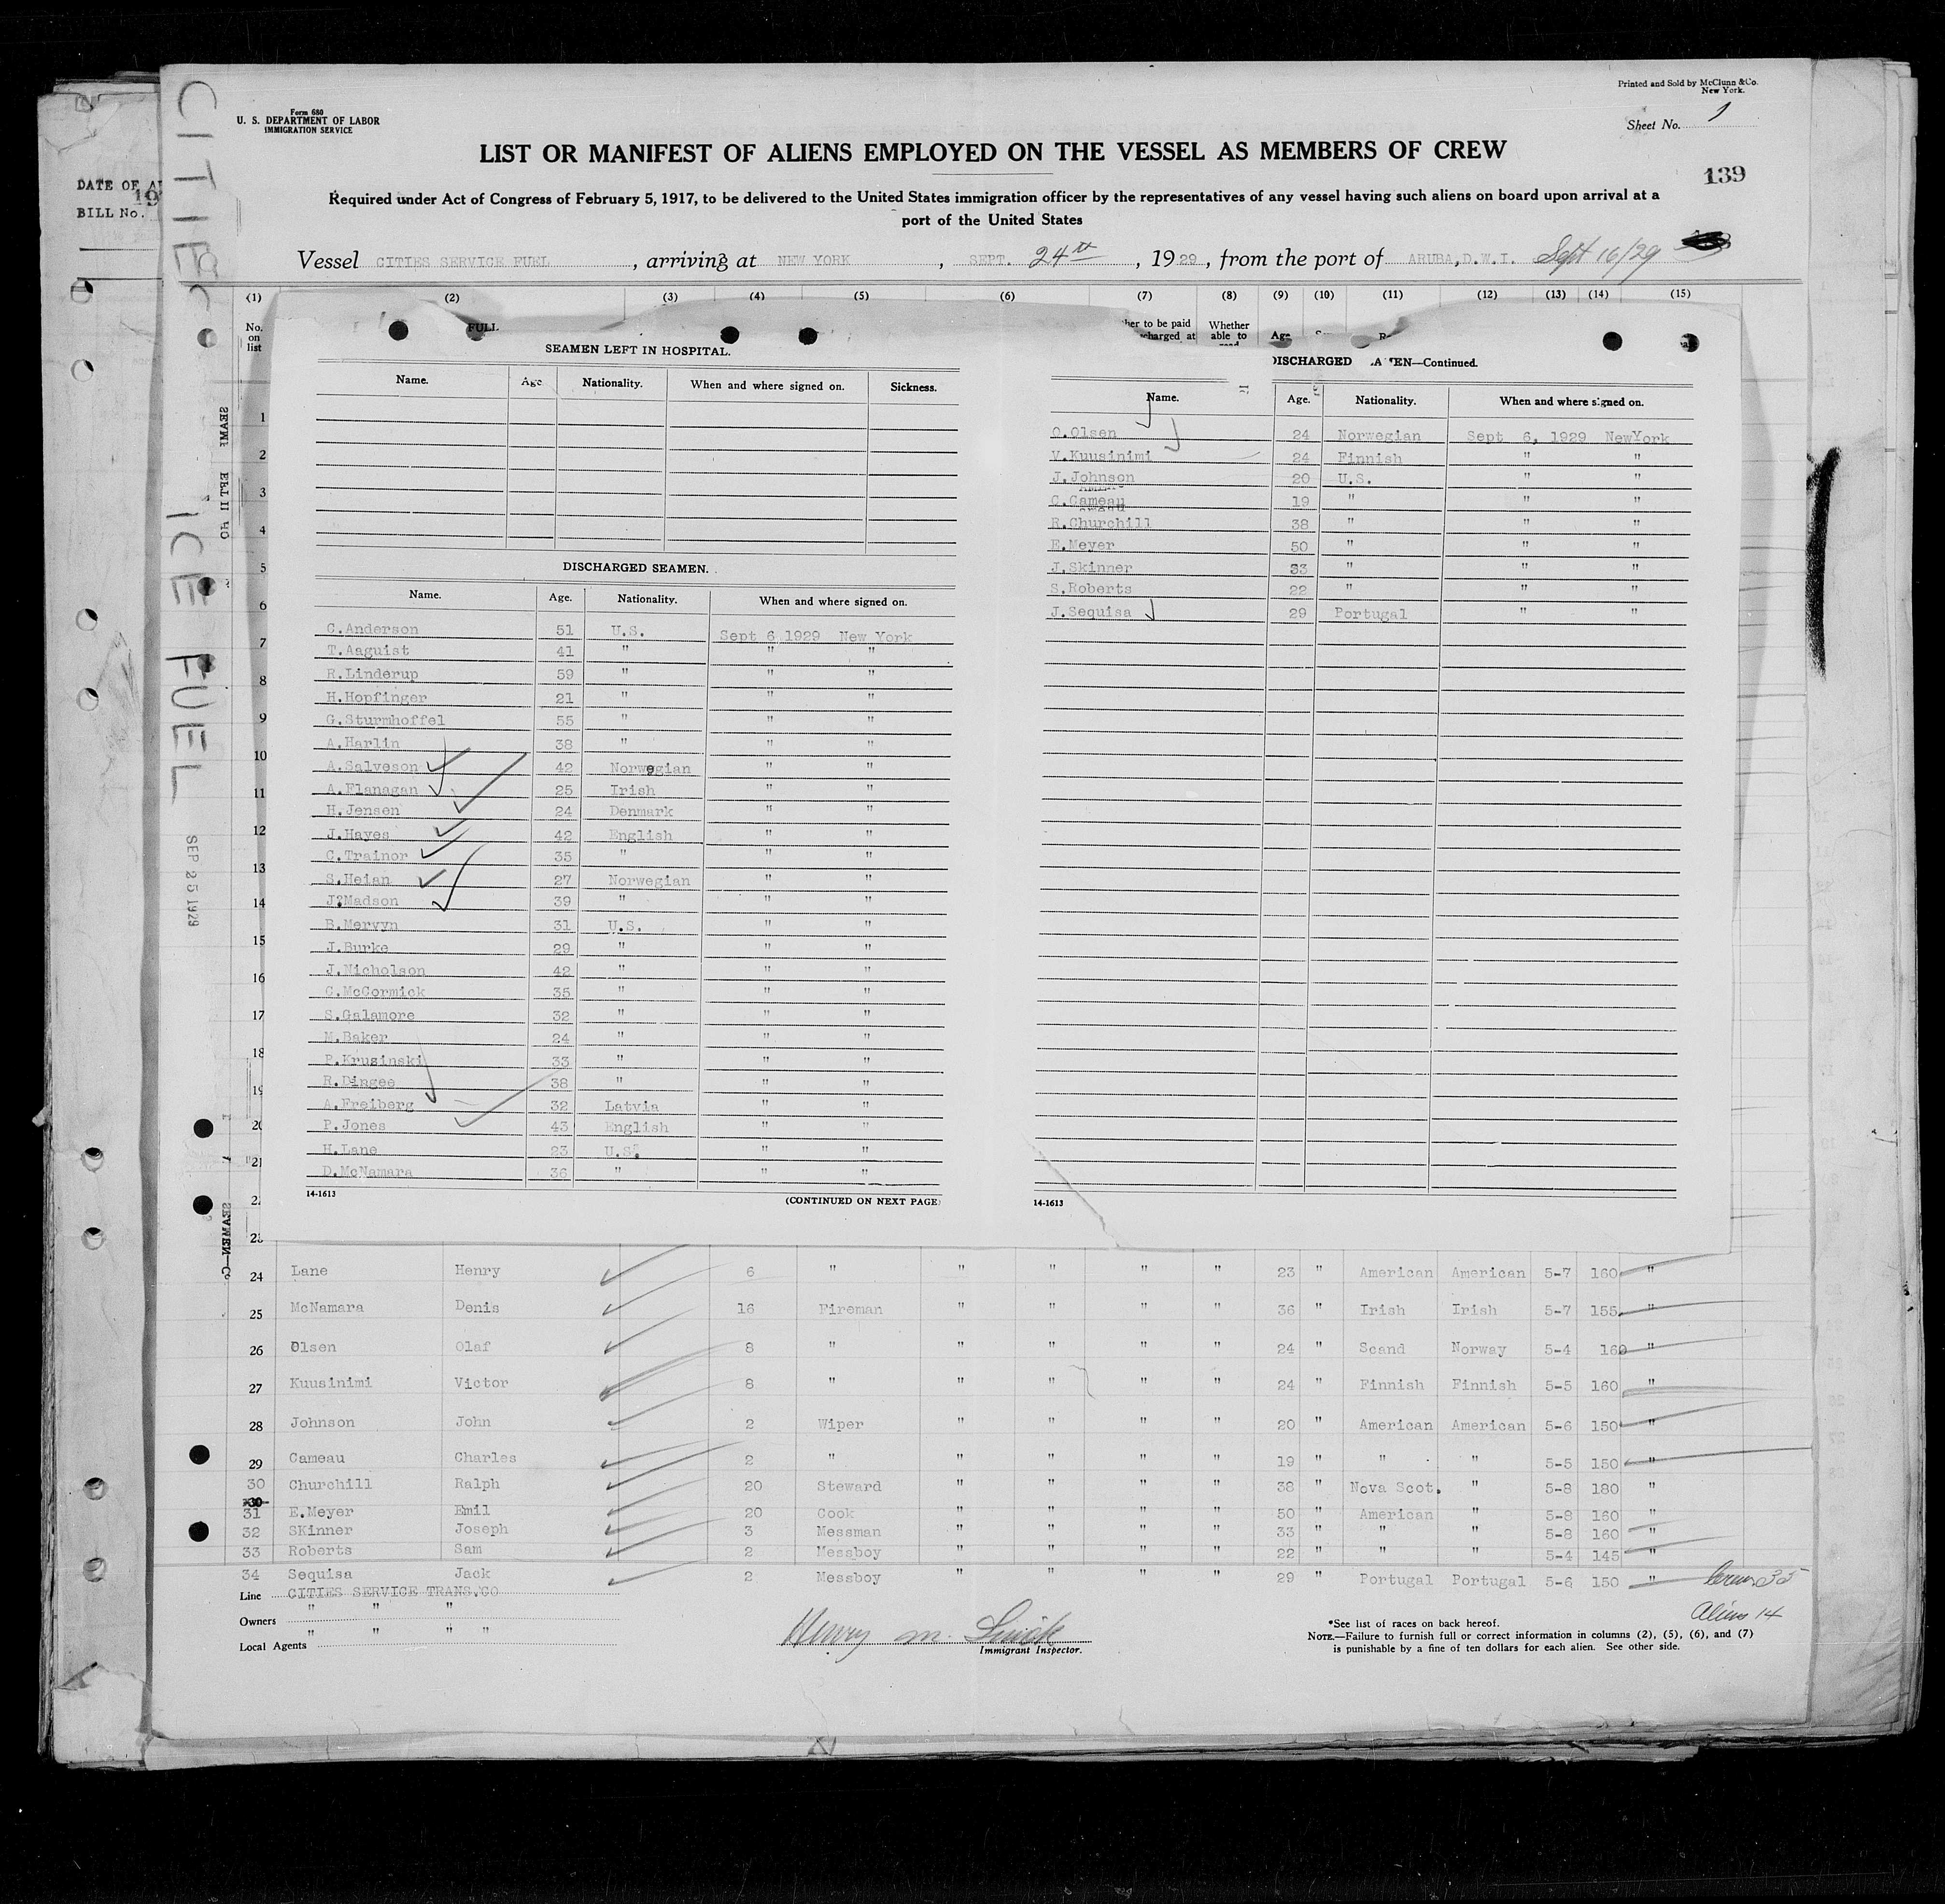 Printed and Sold by McClunn & Co.
New York.
Form 680
U. S. DEPARTMENT OF LABOR
IMMIGRATION SERVICE
Sheet No. 1
LIST OR MANIFEST OF ALIENS EMPLOYED ON THE VESSEL AS MEMBERS OF CREW
139
Required under Act of Congress of February 5, 1917, to be delivered to the United States immigration officer by the representatives of any vessel having such aliens on board upon arrival at a
port of the United States
Vessel CITIES SERVICE FUEL, arriving at NEW YORK, SEPT. 24th, 1929, from the port of ARUBA, D.W.I. Sept 16/29
(1) (2) (3) (4) (5) (6) (7) (8) (9) (10) (11) (12) (13) (14) (15)
No. on list FULL to be paid Whether able to Age
DATE OF
BILL No.
CITIES
ICE FUEL
SEP 25 1929
SEAMEN LEFT IN HOSPITAL.
Name. Age. Nationality. When and where signed on. Sickness.
DISCHARGED SEAMEN.
Name. Age. Nationality. When and where signed on.
C.Anderson 51 U.S. Sept 6 1929 New York
T.Aaguist 41 " " "
R.Linderup 59 " " "
H.Hopfinger 21 " " "
G.Sturmhoffel 55 " " "
A.Harlin 38 " " "
A.Salveson 42 Norwegian " "
A.Flanagan 25 Irish " "
H.Jensen 24 Denmark " "
J.Hayes 42 English " "
C.Trainor 35 " " "
S.Heian 27 Norwegian " "
J.Madson 39 " " "
B.Mervyn 31 U.S. " "
J.Burke 29 " " "
J.Nicholson 42 " " "
C.McCormick 35 " " "
S.Galamore 32 " " "
M.Baker 24 " " "
P.Krusinski 33 " " "
R.Dingee 38 " " "
A.Freiberg 32 Latvia " "
P.Jones 43 English " "
H.Lane 23 U.S. " "
D.McNamara 36 " " "
14-1613 (CONTINUED ON NEXT PAGE)
DISCHARGED SEAMEN—Continued.
Name. Age. Nationality. When and where signed on.
O.Olsen 24 Norwegian Sept 6, 1929 NewYork
V.Kuusinimi 24 Finnish " "
J.Johnson 20 U.S. " "
C.Cameau 19 " " "
R.Churchill 38 " " "
E.Meyer 50 " " "
J.Skinner 33 " " "
S.Roberts 22 " " "
J.Sequisa 29 Portugal " "
14-1613
24 Lane Henry 6 " " " " " 23 " American American 5-7 160 "
25 McNamara Denis 16 Fireman " " " " 36 " Irish Irish 5-7 155 "
26 Olsen Olaf 8 " " " " " 24 " Scand Norway 5-4 160 "
27 Kuusinimi Victor 8 " " " " " 24 " Finnish Finnish 5-5 160 "
28 Johnson John 2 Wiper " " " " 20 " American American 5-6 150 "
29 Cameau Charles 2 " " " " " 19 " " " 5-5 150 "
30 Churchill Ralph 20 Steward " " " " 38 " Nova Scot. " 5-8 180 "
31 E.Meyer Emil 20 Cook " " " " 50 " American " 5-8 160 "
32 SKinner Joseph 3 Messman " " " " 33 " " " 5-8 160 "
33 Roberts Sam 2 Messboy " " " " 22 " " " 5-4 145 "
34 Sequisa Jack 2 Messboy " " " " 29 " Portugal Portugal 5-6 150 "
Line CITIES SERVICE TRANS.CO
Owners " " " "
Local Agents " " " "
Immigrant Inspector.
Aliens 14
*See list of races on back hereof.
NOTE.—Failure to furnish full or correct information in columns (2), (5), (6), and (7)
is punishable by a fine of ten dollars for each alien. See other side.